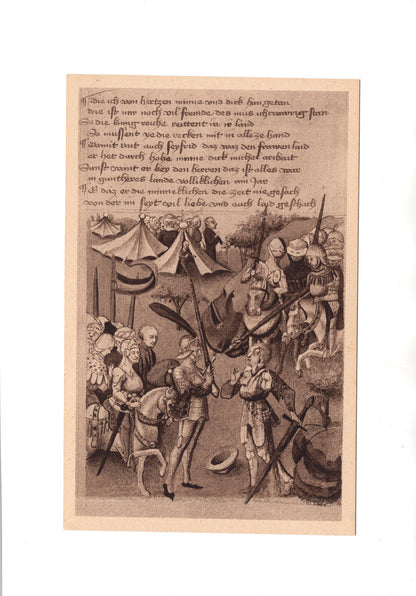 die ich von hertzen minne vnd dick han getan
die ist mir noch vil fremde des mus ich trawrig stan
So die kunig reiche reittent in ir land
So mussent ye die recken mit in alle zu hand
Damit mut auch Seyfrid daz waz den frawen laid
er het durch hohe minne dick michel arbait
Sunst wont er bey den herren daz ist alles war
in guntheres lande volliklichen ain Jar
E daz er die minneklichen die zeit nie gesach
von der im seyt vil liebe vnd auch layd geschach